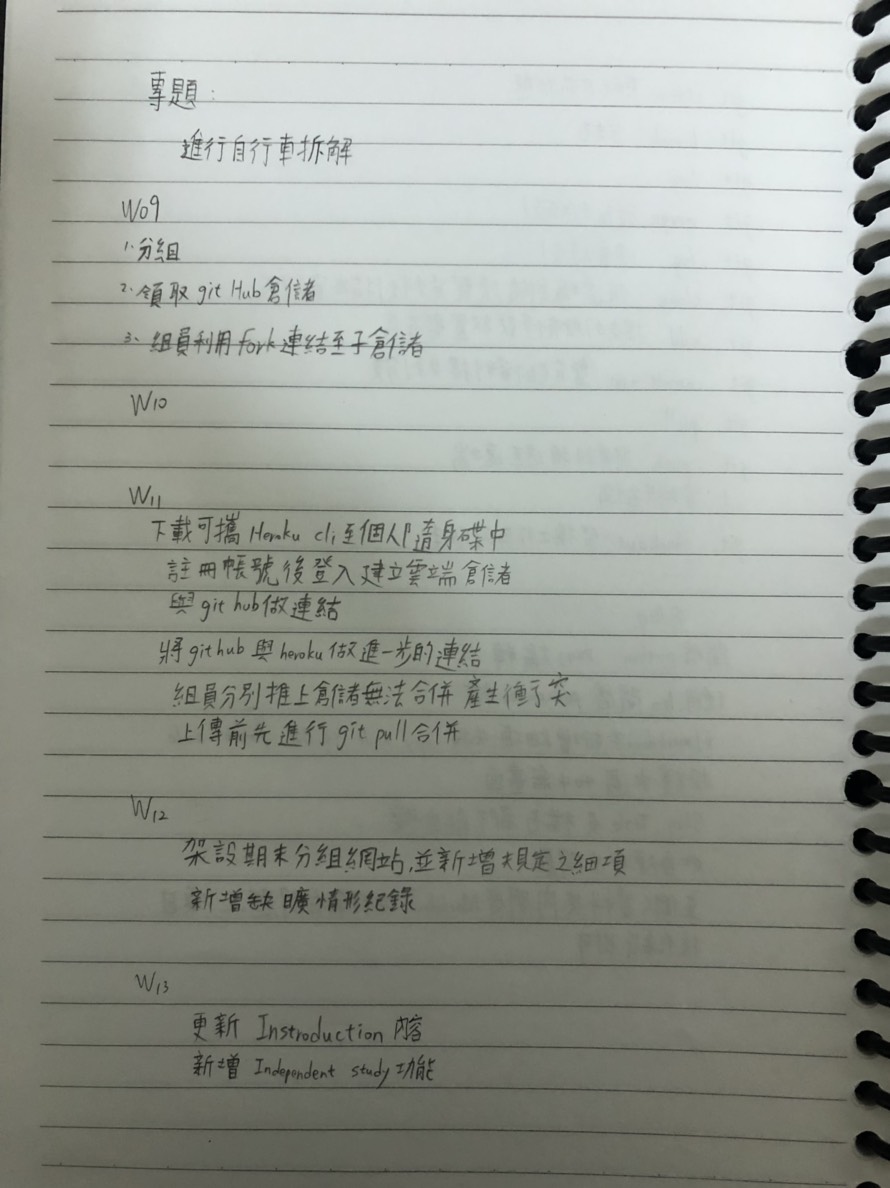 專題：
進行自行車拆解
W09
1. 分組
2. 領取 git Hub 倉儲
3. 組員利用 fork 連結至子倉儲
W10
W11
下載可攜 Heroku cli 至個人隨身碟中
註冊帳號後登入 建立雲端倉儲
與 git hub 做連結
將 git hub 與 heroku 做進一步的連結
組員分別推上倉儲無法合併 產生衝突
上傳前先進行 git pull 合併
W12
架設期末分組網站,並新增規定之細項
新增缺曠情形紀錄
W13
更新 Instroduction 內容
新增 Independent study 功能